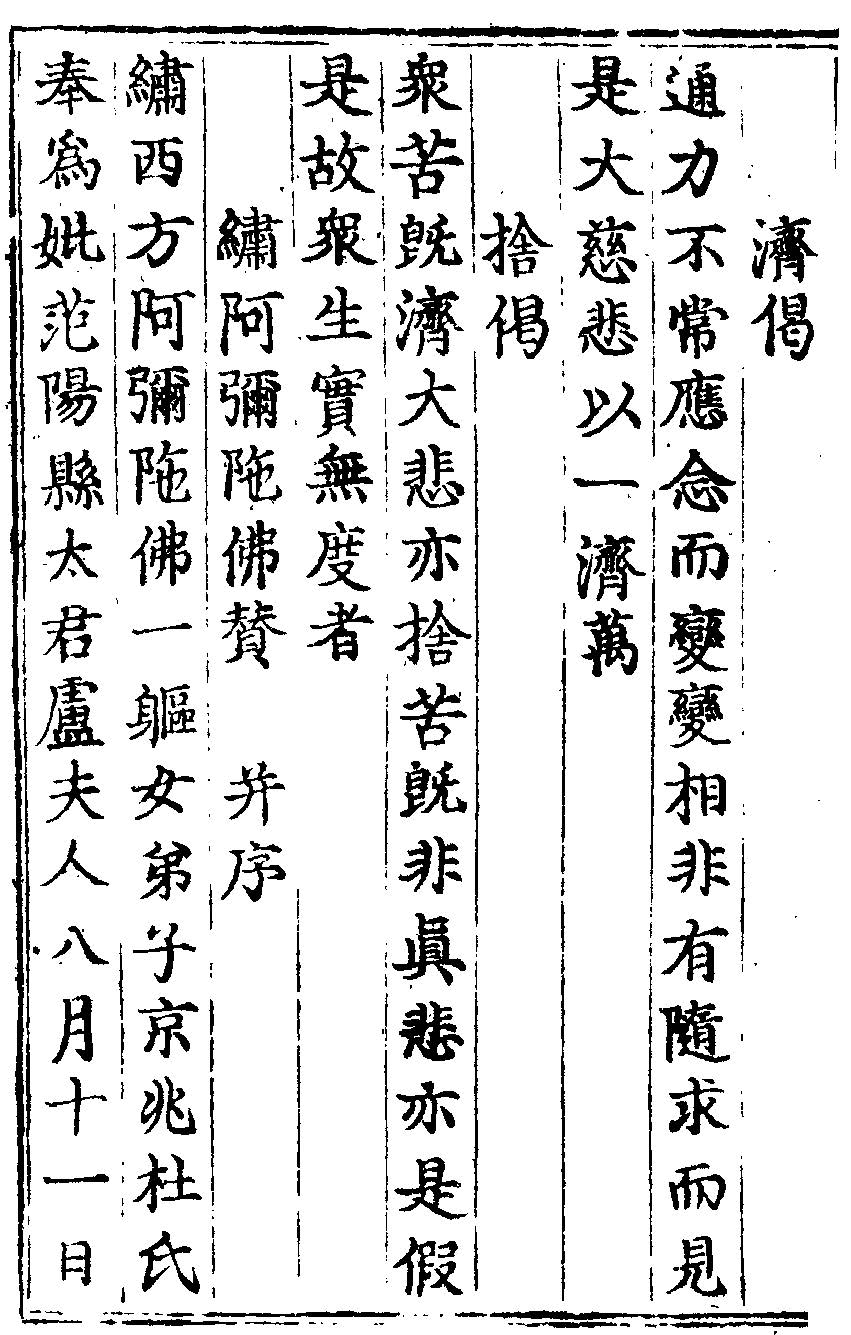 濟偈
通力不常應念而變變相非有隨求而見
是大慈悲以一濟萬
捨偈
衆苦旣濟大悲亦捨苦旣非眞悲亦是假
是故衆生實無度者
繡阿彌陁佛賛 并序
繡西方阿彌陁佛一軀女弟子京兆杜氏
奉爲妣范陽縣太君盧夫人八月十一日